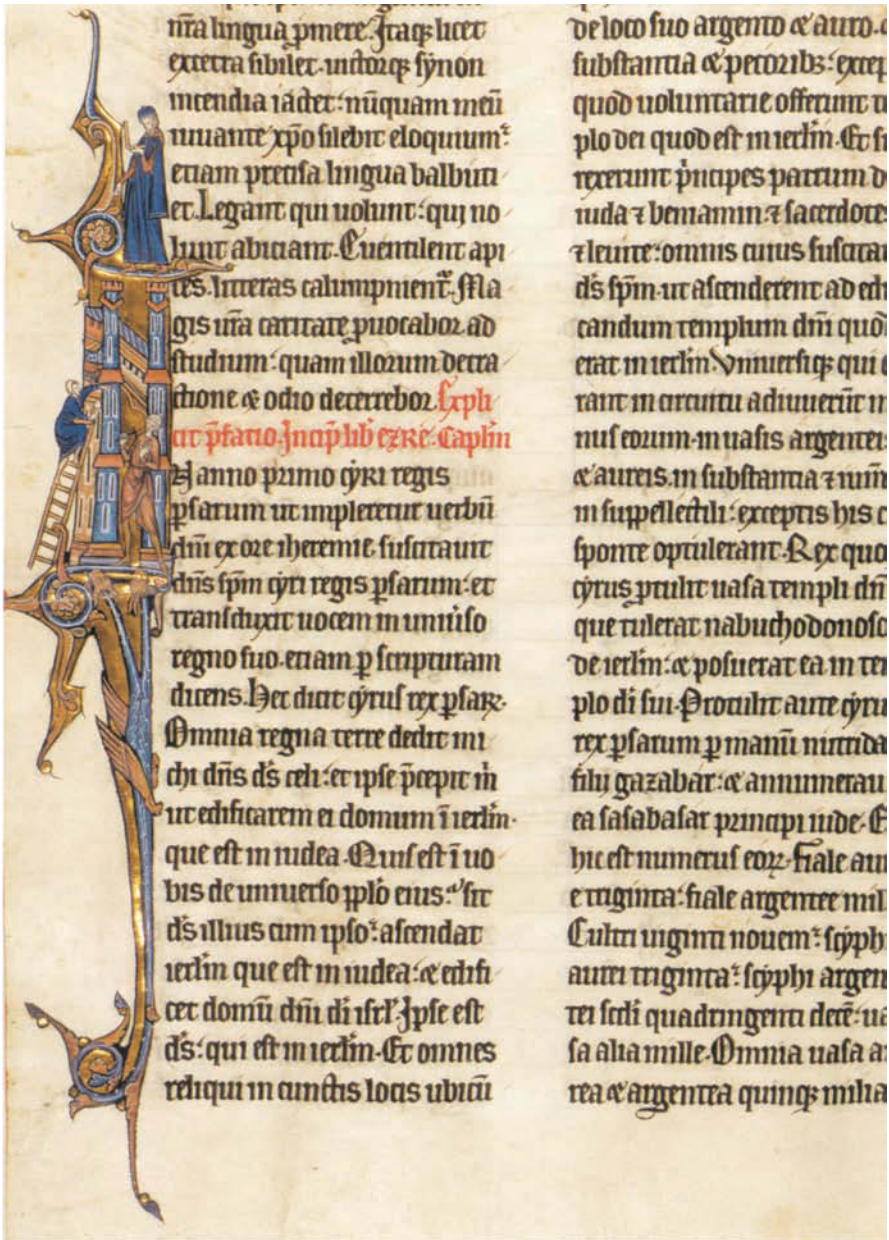 nr̃a lingua ꝓmere. Itaqꝫ licet
excetra sibilet. uictorqꝫ synon
incendia iactet: nũquam meũ
iuuante xp̃o silebit eloquium:
etiam precisa lingua balbuti
et. Legant qui uolunt: qui no
lunt abiciant. Euentilent api
ces. litteras calumpnient̃. Ma
gis ur̃a caritate ꝓuocabor ad
studium: quam illorum detra
ctione ⁊ odio deterrebor. Expli
cit p̃fatio. Incip̃ lib̃ ezRe. Cap̃lm̃
N anno primo cyRI regis
ꝑsarum ut impleretur uerbũ
dñi ex ore iheremie. suscitauit
dñs sp̃m cyri regis ꝑsarum: et
transduxit uocem in uniũso
regno suo. etiam ꝑ scripturam
dicens. Hec dicit cyrus rex ꝑsaꝝ.
Omnia regna terre dedit mi
chi dñs d̃s celi: et ipse p̃cepit m̃
ut edificarem ei domum ĩ ierl̃m.
que est in iudea. Quis est ĩ uo
bis de uniuerso pp̃lo eius: sit
d̃s illius cum ipso: ascendat
ierl̃m que est in iudea: ⁊ edifi
cet domũ dñi di isrl̃. Ipse est
d̃s: qui est in ierl̃m. Et omnes
reliqui in cunctis locis ubicũ
de loco suo argento ⁊ auro.
substantia ⁊ pecoribꝫ: excep
quod uoluntarie offerunt t
plo dei quod est in ierl̃m. Et s
rexerunt p̃ncipes patrum d
iuda ⁊ beniamin. ⁊ sacerdotes
⁊ leuite: omnis cuius suscita
d̃s sp̃m. ut ascenderent ad edi
candum templum dñi quod
erat in ierl̃m. Vniuersiqꝫ qui
rant in circuitu adiuuerũt m
nus eorum. in uasis argenteis
⁊ aureis. in substantia ⁊ ium̃
in suppellectili: exceptis his
sponte optulerant. Rex quo
cyrus ꝓtulit uasa templi dñi
que tulerat nabuchodonoso
de ierl̃m: ⁊ posuerat ea in tem
plo di sui. Protulit aute cyru
rex ꝑsarum ꝑ manũ mitrida
filii gazabar: ⁊ annumerau
ea sasabasar principi iude. E
hic est numerus eoꝝ. Fiale au
e triginta: fiale argentee mil
Cultri uiginti nouem: scyphi
aurei triginta: scyphi argen
tei scd̃i quadringenti decẽ: ua
sa alia mille. Omnia uasa a
rea ⁊ argentea quinqꝫ milia